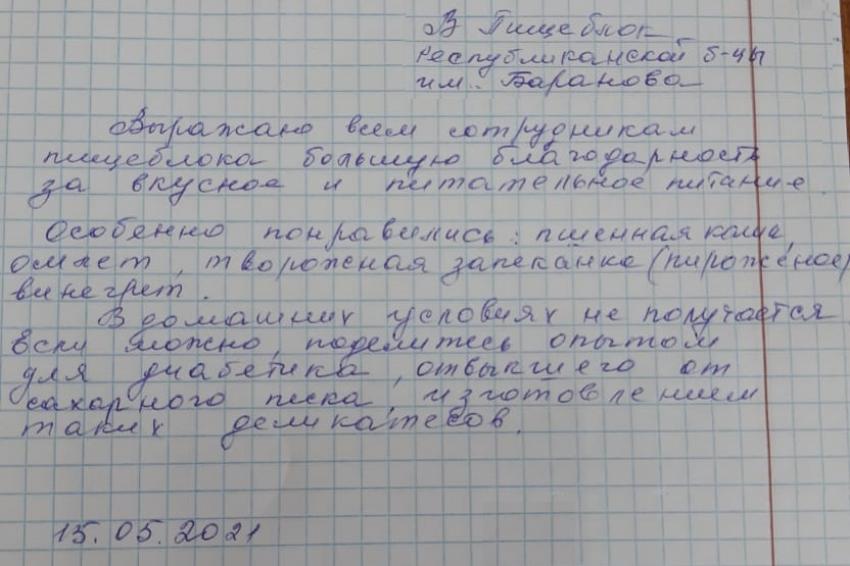 В Пищеблок
Республиканской б-цы
им. Баранова
Выражаю всем сотрудникам
пищеблока большую благодарность
за вкусное и питательное питание.
Особенно понравились: пшенная каша,
омлет, творожная запеканка (пирожёное)
винегрет.
В домашних условиях не получается
Если можно, поделитесь опытом
для диабетика, отвыкшего от
сахарного песка, изготовлением
таких деликатесов.
15.05.2021